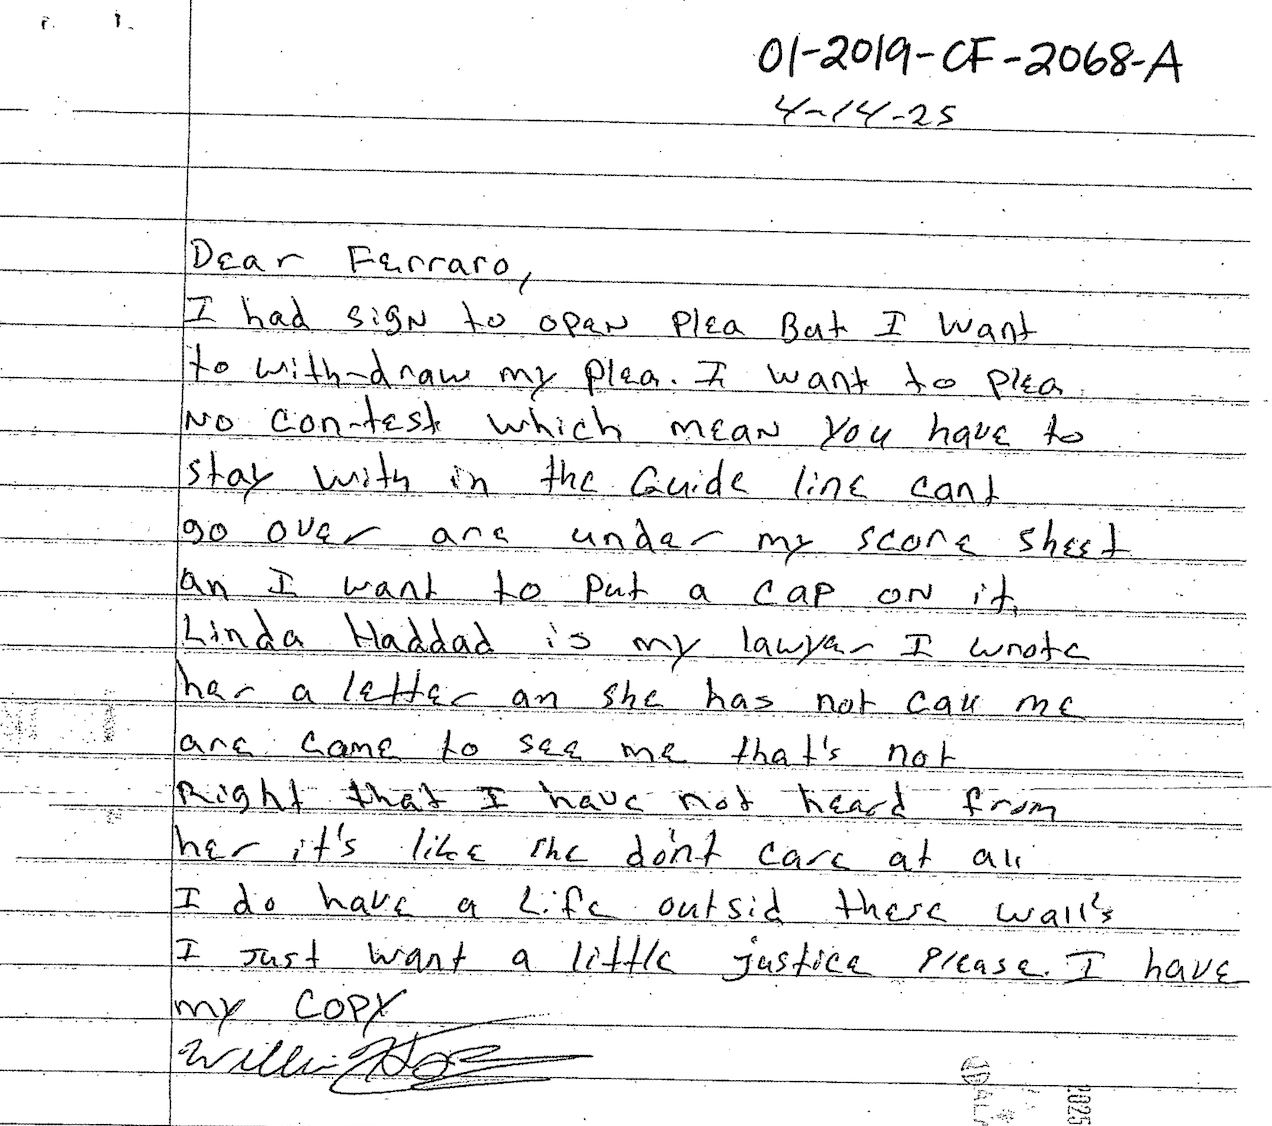 01-2019-CF-2068-A
4-14-25
Dear Ferraro,
I had sign to open plea But I want
to with-draw my plea. I want to plea
No con-test which mean you have to
stay with in the Guide line cant
go over are under my score sheet
an I want to put a cap on it,
Linda Haddad is my lawyer I wrote
her a letter an she has not call me
are came to see me that's not
Right that I have not heard from
her it's like she don't care at all
I do have a Life outsid these wall's
I Just want a little justice Please. I have
my COPY
2025